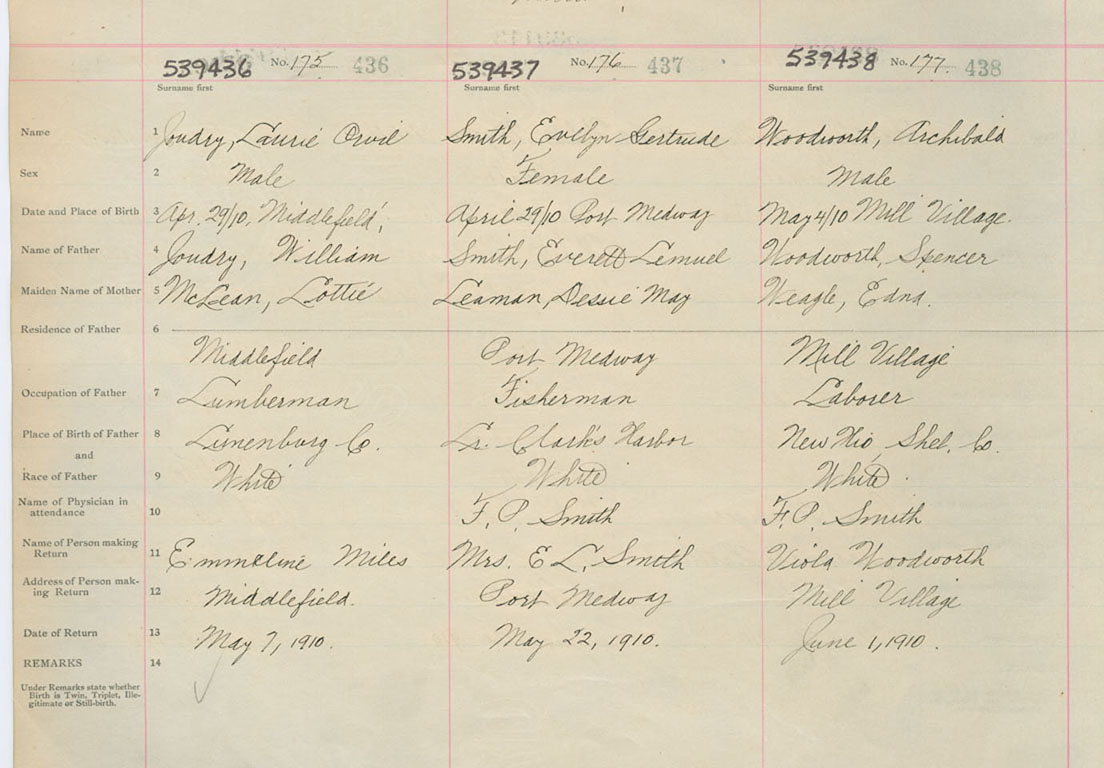 539436 No. 175 436 539437 No. 176 437 539438 No. 177. 438
Surname first Surname first Surname first
Name 1 Joudry, Laurie Orvil Smith, Evelyn Gertrude Woodworth, Archibald
Sex 2 Male Female Male
Date and Place of Birth 3 Apr. 29/10, Middlefield, April 29/10 Port Medway May 4/10 Mill Village.
Name of Father 4 Joudry, William Smith, Everett Lemuel Woodworth, Spencer
Maiden Name of Mother 5 McLean, Lottie Leaman, Dessie May Weagle, Edna.
Residence of Father 6
Middlefield Port Medway Mill Village
Occupation of Father 7 Lumberman Fisherman Laborer
Place of Birth of Father 8 Lunenburg Co. Clark's Harbor New Shel. Co.
and
Race of Father 9 White White White
Name of Physician in
attendance 10 F. P. Smith F. P. Smith
Name of Person making
Return 11 Emmeline Miles Mrs. E L. Smith Viola Woodworth
Address of Person mak-
ing Return 12 Middlefield. Port Medway Mill Village
Date of Return 13 May 7, 1910. May 22, 1910. June 1, 1910.
REMARKS 14
Under Remarks state whether
Birth is Twin, Triplet, Ille-
gitimate or Still-birth.